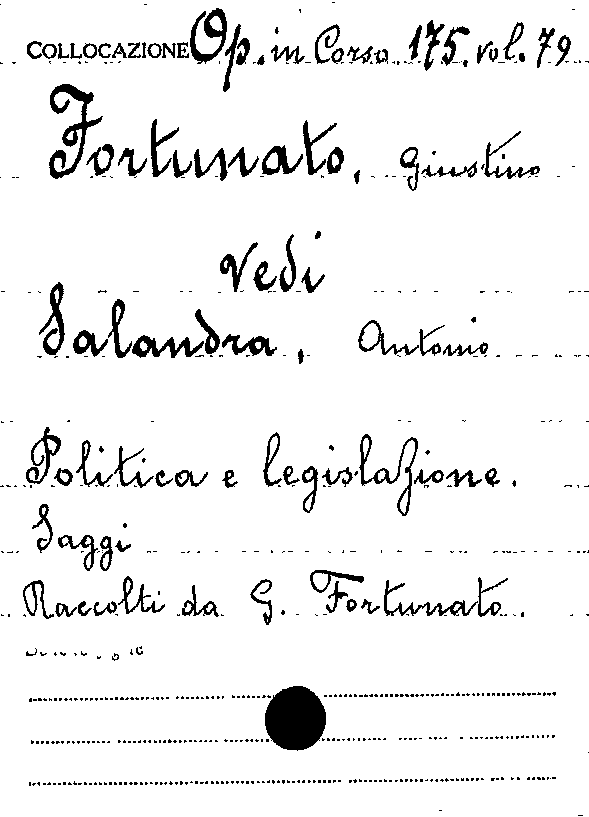 COLLOCAZIONE Op. in Corso 175. vol. 79
Fortunato, Giustino
Vedi
Salandra, Antonio
Politica e legislazione.
Saggi
Raccolti da G. Fortunato.